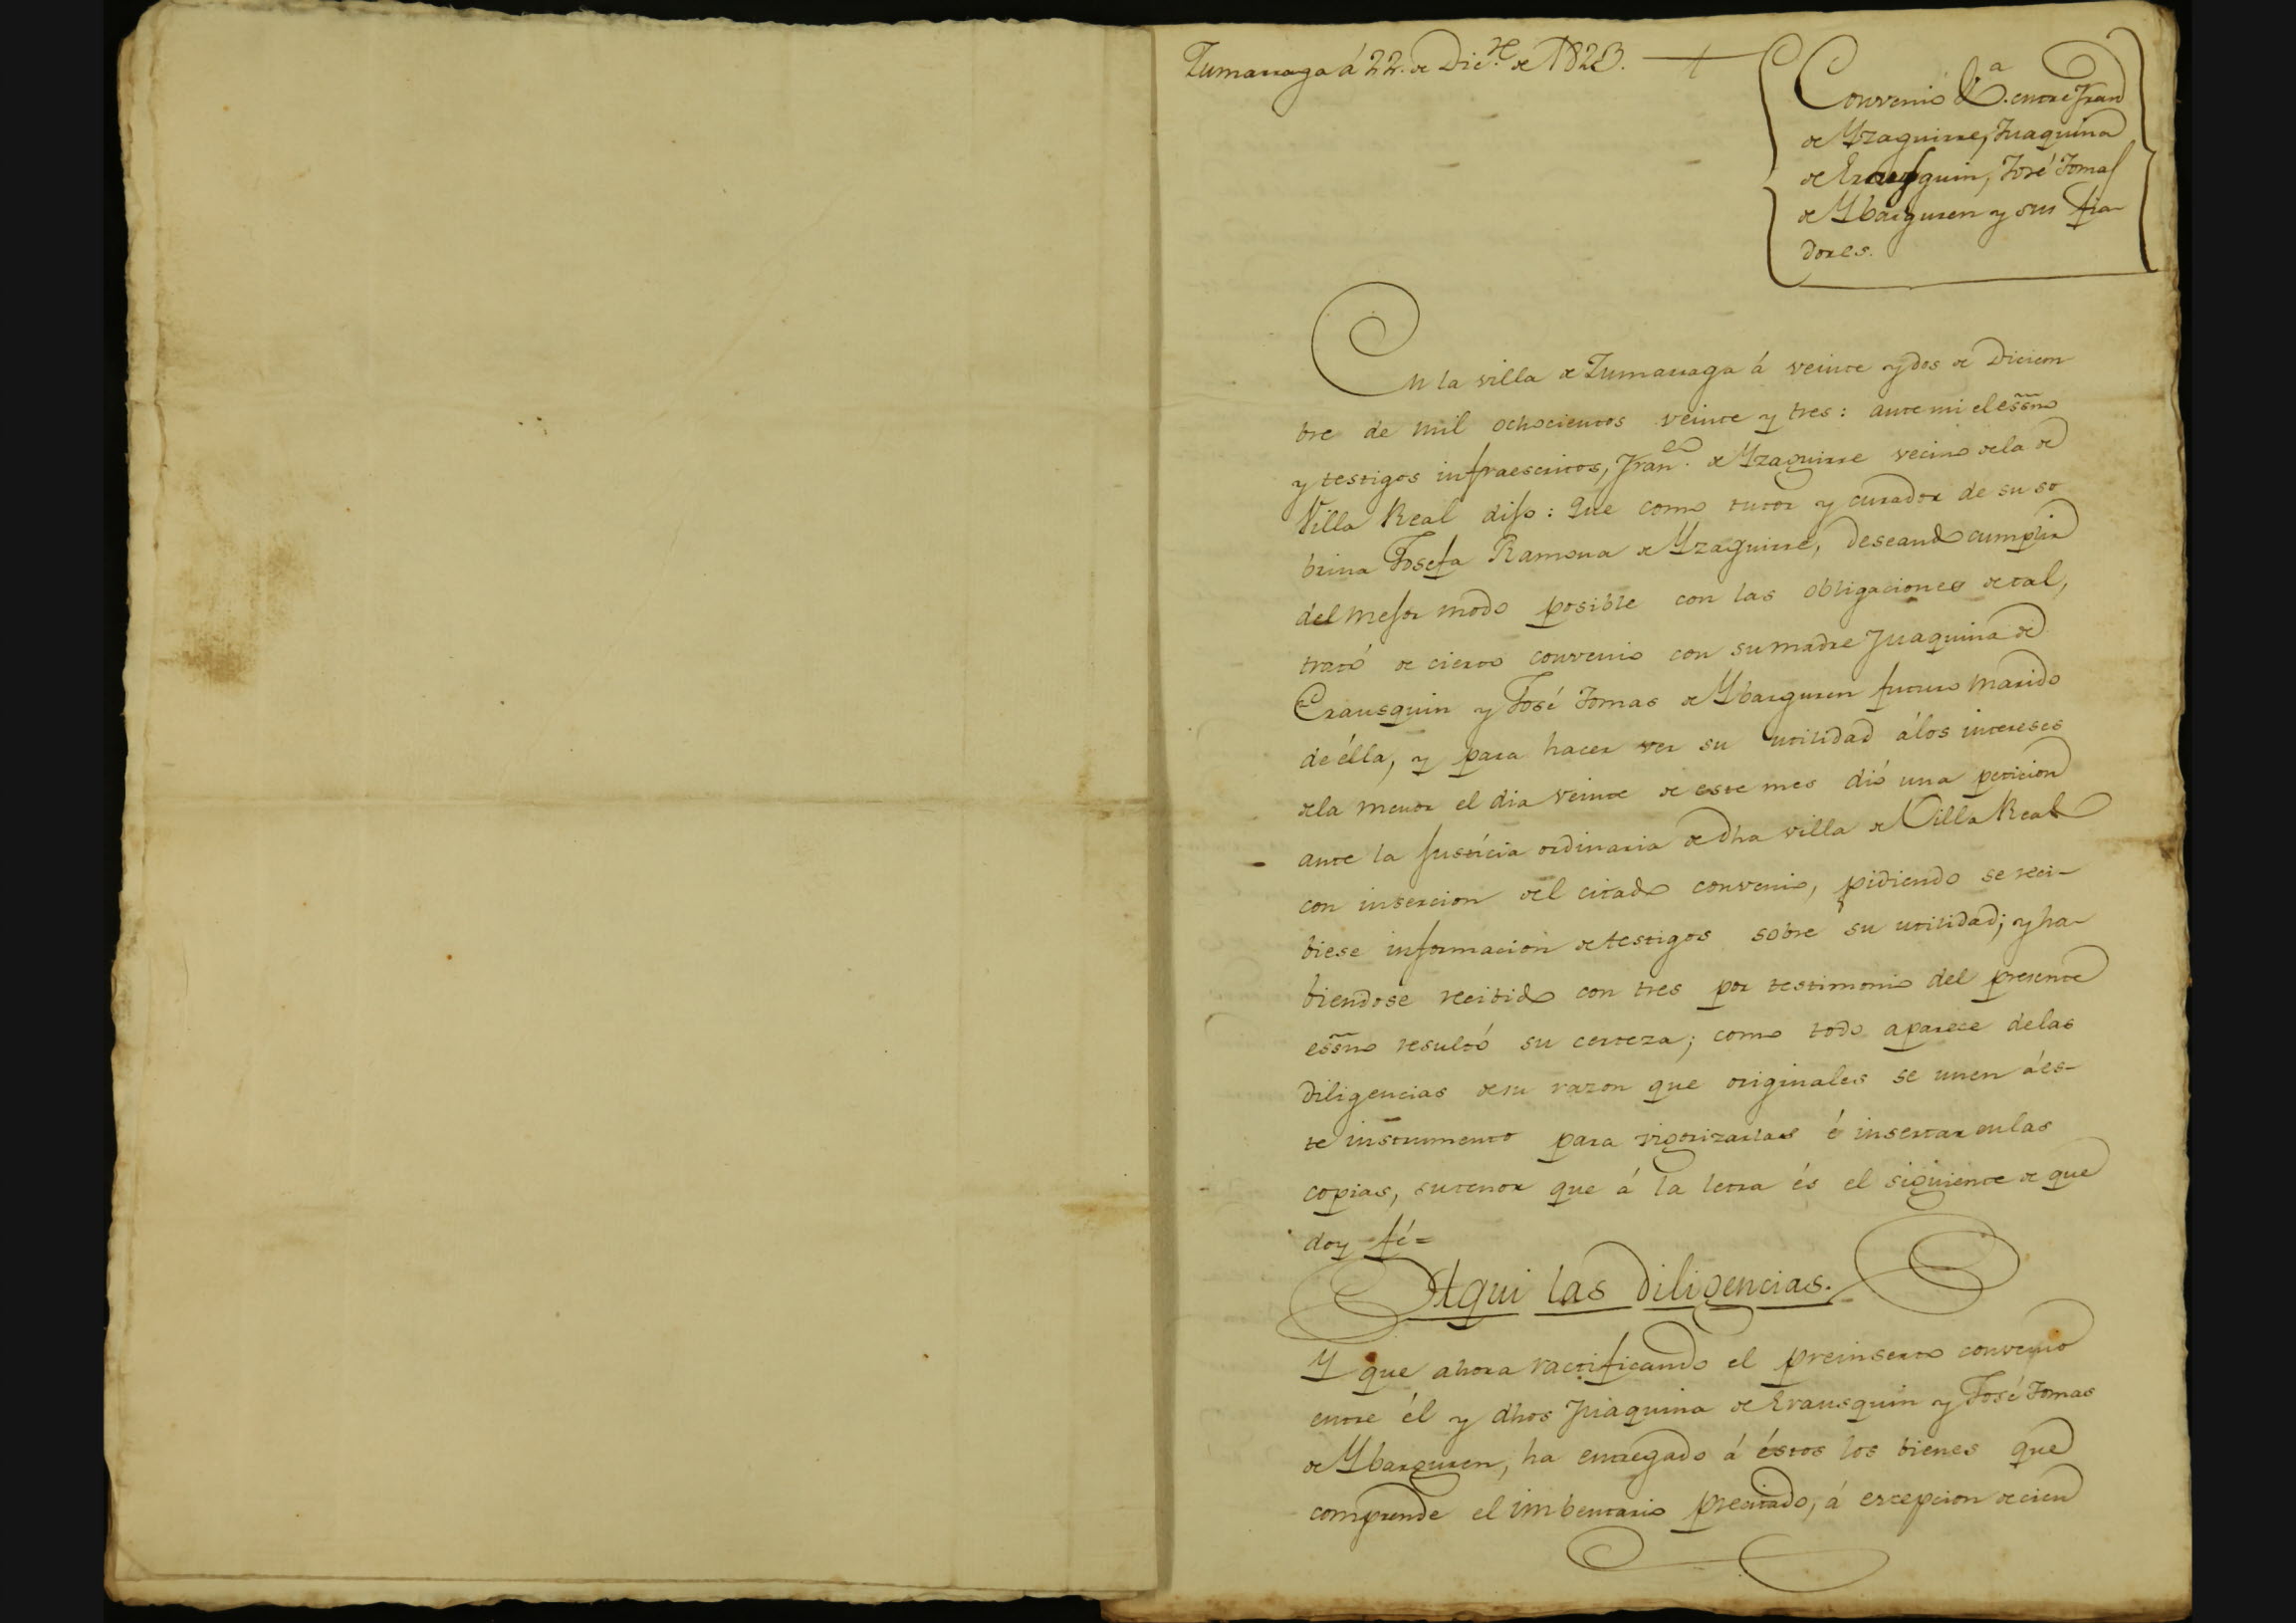 Zumarraga á 22. de Dic.re de 1823.
Convenio &.a entre Fran.co
de Yzaguirre, Juaquina
de Erausquin, José Tomas
de Ybarguren y sus fia-
dores.
En la villa de Zumarraga á veinte y dos de Diciem
bre de mil ochocientos veinte y tres: ante mi el essno
y testigos infraescritos, Fran.co de Yzaguirre vecino de la de
Villa Real dijo: Que como tutor y curador de su so
brina Josefa Ramona de Yzaguirre, deseando cumplir
del mejor modo posible con las obligaciones de tal,
trató de cierto convenio con su madre Juaquina de
Erausquin y José Tomas de Ybarguren futuro marido
de élla, y para hacer ver su utilidad á los intereses
de la menor el dia veinte de este mes dió una peticion
ante la Justicia ordinaria de dha villa de Villa Real
con insercion del citado convenio, pidiendo se reci-
biese informacion de testigos sobre su utilidad; y ha-
biendose recibido con tres por testimonio del presente
essno resultó su certeza; como todo aparece de las
diligencias de su razon que originales se unen á és-
te instrumento para vigorizarlas é insertar en las
copias, su tenor que á la letra és el siguiente de que
doy fé =
Aqui las diligencias.
Y que ahora ractificando el preinserto convenio
entre él y dhos Juaquina de Erausquin y José Tomas
de Ybarguren, ha entregado á éstos los bienes que
comprende el imbentario precitado, á excepcion de cien